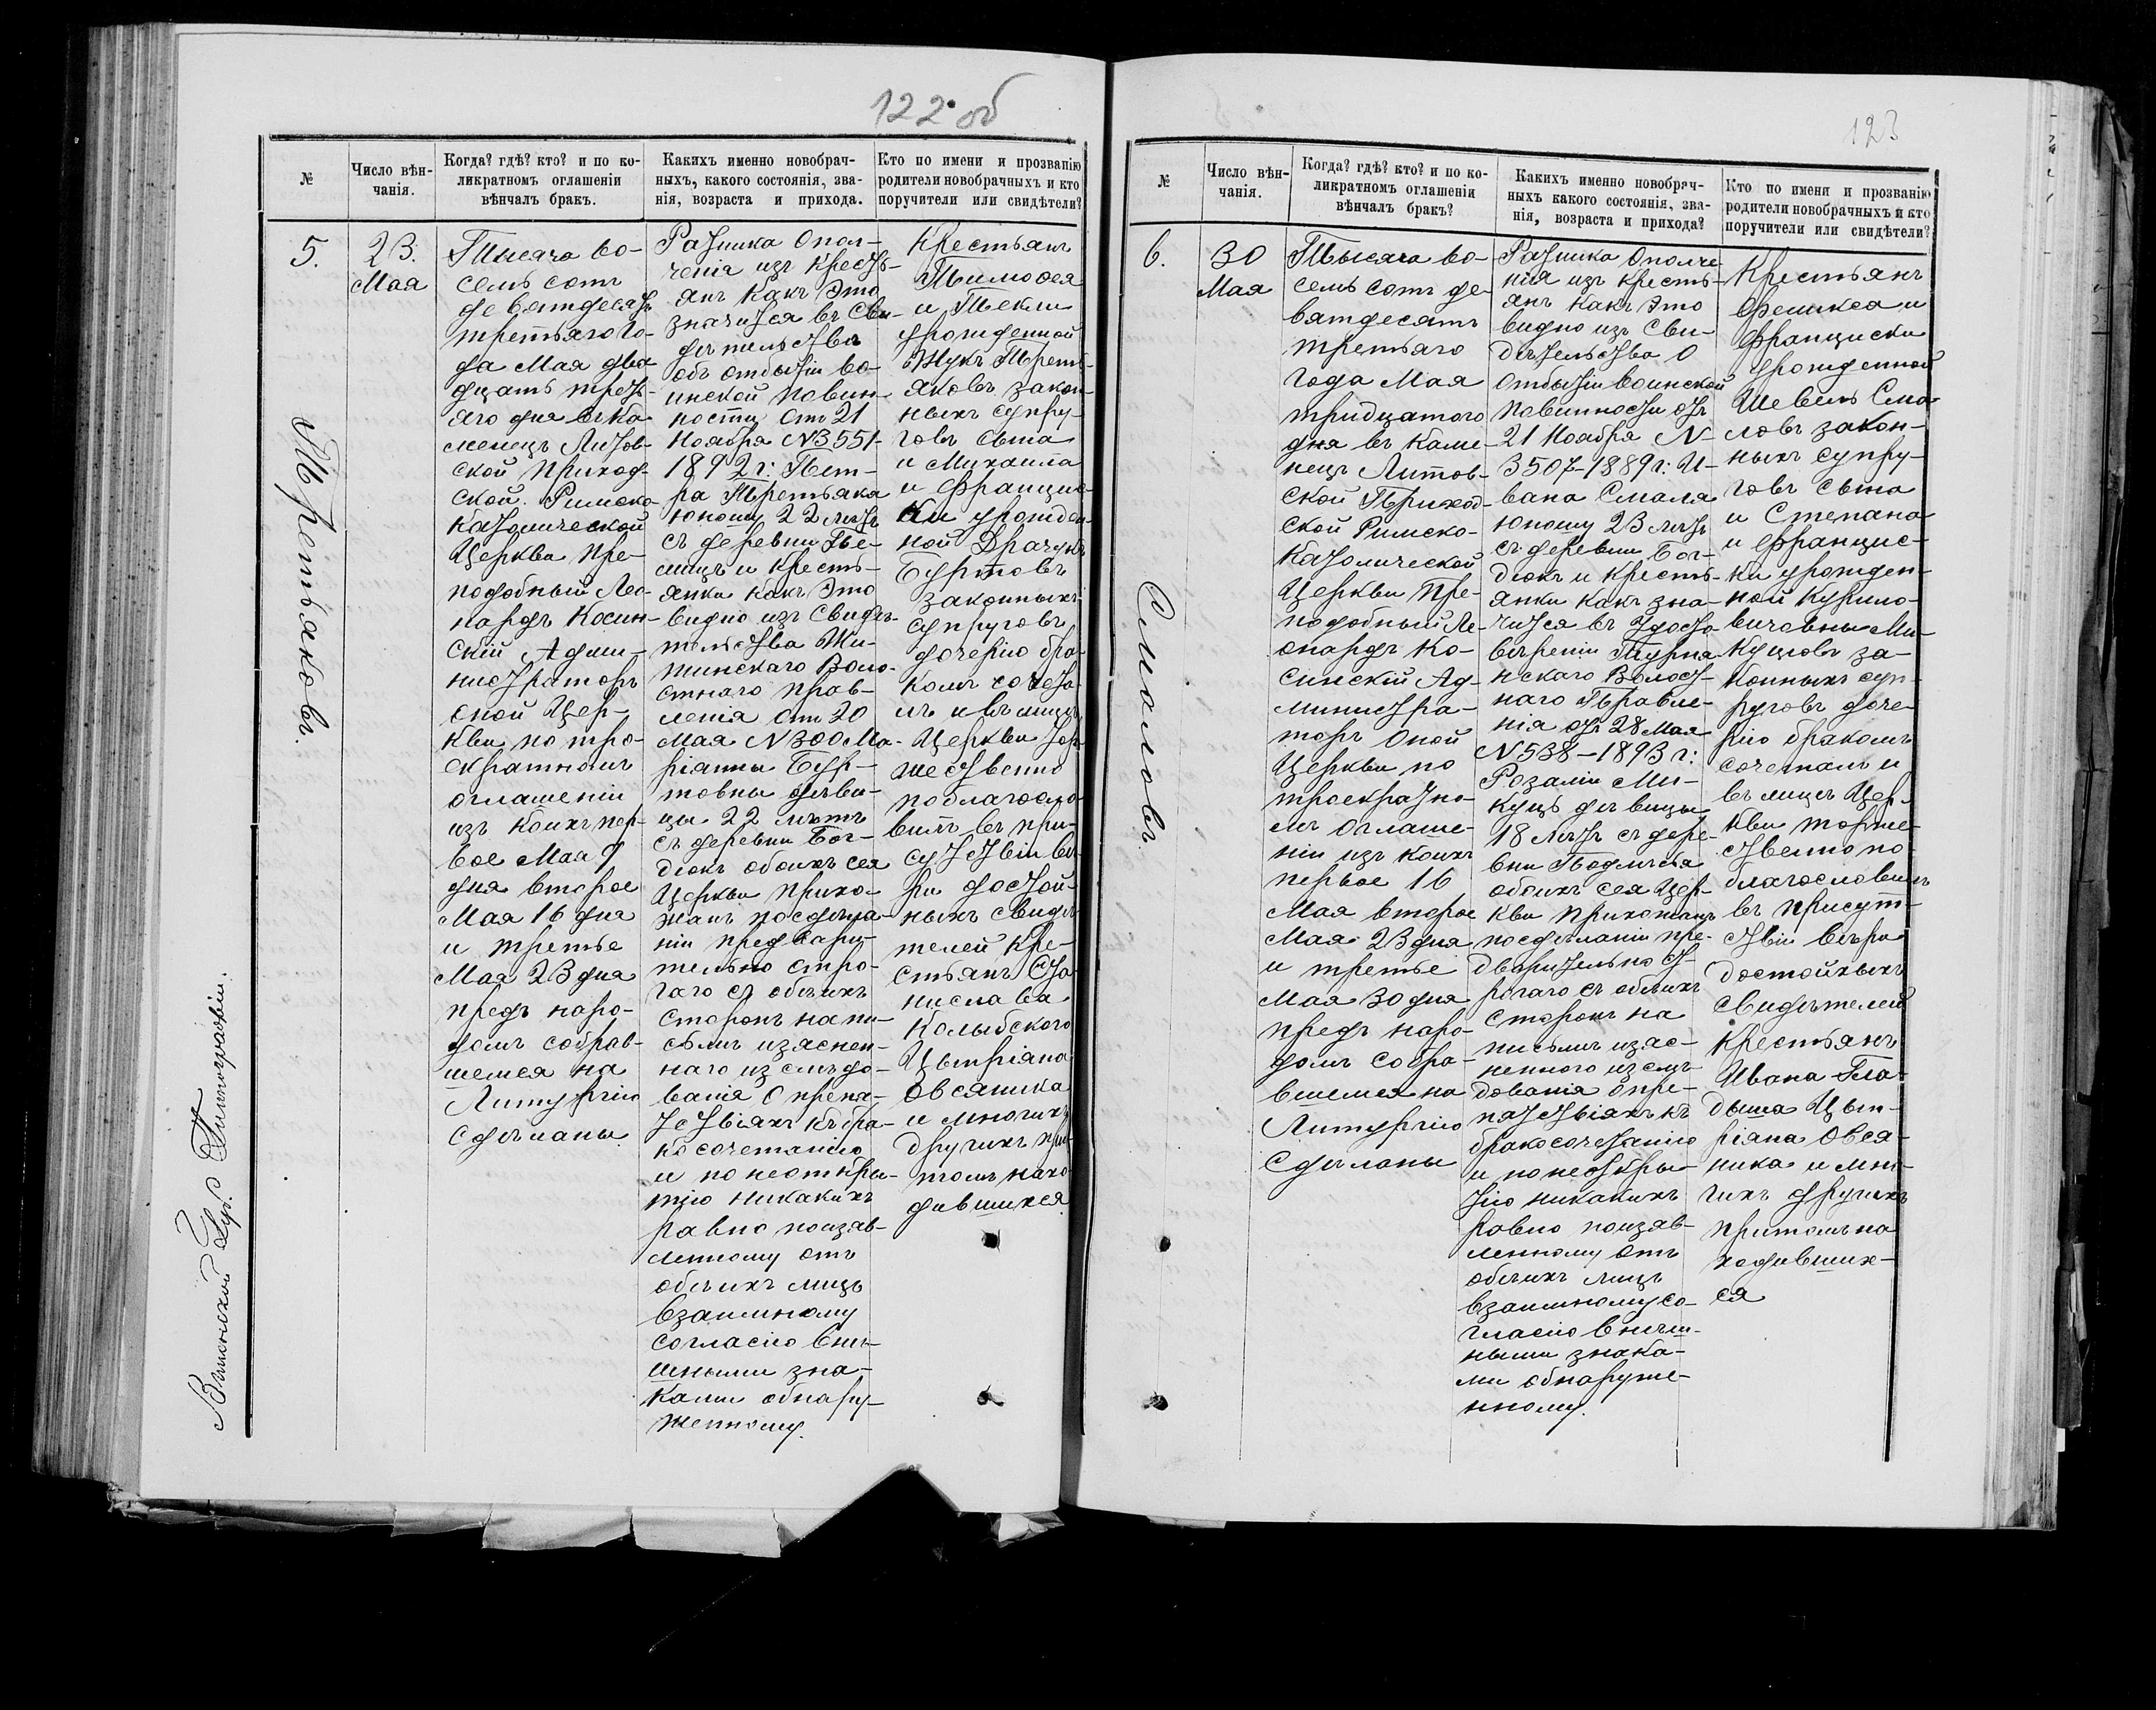 122 об
№
Число вѣн-
чанія.
Когда? гдѣ? кто? и по ко-
ликратномъ оглашеніи
вѣнчалъ бракъ.
Какихъ именно новобрач-
ныхъ, какого состоянія, зва-
нія, возраста и прихода.
Кто по имени и прозванію
родители новобрачныхъ и кто
поручители или свидѣтели?
5.
Третьяковъ.
23.
Мая
Тысяча во-
семь сотъ
девятдесятъ
третьяго го-
да Мая два
дцать треть-
яго дня въ Ка
менецъ Литов-
ской приход-
ской Римско
католической
Церкви Пре-
подобный Лео-
нардъ Косин-
скій Адми-
нистраторъ
оной Цер-
кви по тро-
екратномъ
оглашеніи
изъ коихъ пер-
вое Мая 9
дня второе
Мая 16 дня
и третье
Мая 23 дня
предъ наро-
домъ собрав-
шемся на
Литургію
сдѣланы
Ратника Опол-
ченія изъ Кресть-
янъ какъ это
значится въ Сви-
дѣтельства
объ отбытіи во-
инской повин-
ности отъ 21
Ноября N3551-
1892 г: Пет-
ра Третьяка
юношу 22 лѣтъ
съ деревни Пе-
лищъ и кресть-
янки какъ это
видно изъ Свидѣ-
тельства
тинскаго Воло-
стнаго прав-
ленія отъ 20
Мая N300 Ма-
ріанны Бур-
товны дѣви-
цы 22 лѣтъ
съ деревни Бог-
дюкъ обоихъ сея
Церкви прихо-
жанъ по сдѣла-
ніи предвари-
тельно стро-
гаго съ обѣихъ
сторонъ на пи-
сьмѣ изяснен-
наго изслѣдо-
ванія о препя-
тствіяхъ къ бра-
косочетанію
и по неоткры-
тію никакихъ
равно по изяв-
ленному отъ
обѣихъ лицъ
взаимному
согласію внѣ-
шными зна-
ками обнару-
женному.
Крестьянъ
Тимофея
и Теклы
урожденной
Жукъ Треть-
яковъ закон-
ныхъ супру-
говъ сына
и Михаила
и Францис-
ки урожден-
ной Драчукъ
Буртовъ
законныхъ
супруговъ
дочерію бра-
комъ сочета-
лъ и въ лицѣ
Церкви тор-
жественно
поблагосло-
вилъ въ при-
сутствіи вѣ-
ры достой-
ныхъ свидѣ-
телей кре-
стьянъ Ста-
нислава
Колыбского
Цыпріана
Овсяника
и многихъ
другихъ при-
томъ нахо
дившихся.
Виленской Губ. Типографіи.
123
№
Число вѣн-
чанія.
Когда? гдѣ? кто? и по ко-
ликратномъ оглашеніи
вѣнчалъ бракъ?
Какихъ именно новобрач-
ныхъ какого состоянія, зва-
нія, возраста и прихода?
Кто по имени и прозванію
родители новобрачныхъ и кто
поручители или свидѣтели?
6.
Смоловъ
30
Мая
Тысяча во-
семь сотъ де-
вятдесятъ
третьяго
года Мая
тридцатого
дня въ Каме-
нецъ Литов-
ской Приход-
ской Римско-
Католической
Церкви Пре-
подобный Ле-
онардъ Ко-
синскій Ад-
министра-
торъ Оной
Церкви по
троекратно-
мъ оглаше-
ніи изъ коихъ
первое 16
Мая второе
Мая 23 дня
и третье
Мая 30 дня
предъ наро-
домъ собра-
вшемся на
Литургію
сдѣланы
Ратника Ополче
нія изъ кресть-
янъ какъ это
видно изъ Сви-
дѣтельства о
отбытіи воинской
повинности отъ
21 Ноября N-
3507-1889 г: И-
вана Смаля
юношу 23 лѣтъ
съ деревни Бог-
дюкъ и кресть-
янки какъ зна-
чится въ удосто-
вѣреніи Турна-
нскаго Волост-
наго Правле-
нія отъ 28 Мая
N538-1893 г:
Розаліи Ми-
куцъ дѣвицы
18 лѣтъ съ дере-
вни Подлѣсья
обоихъ сея Цер-
кви прихожанъ
по сдѣланіи пре-
дварительно ст-
рогаго съ обѣихъ
сторонъ на
письмѣ изяс-
неннаго изслѣ-
дованія о пре-
пятствіяхъ къ
бракосочетанію
и по неоткры-
тію никакихъ
равно по изяв-
ленному отъ
обѣихъ лицъ
взаимному со-
гласію внѣш-
ными знака-
ми обнаруже-
нному.
Крестьянъ
Феликса и
Франциски
урожденной
Шевель Смо-
ловъ закон-
ныхъ супру-
говъ сына
и Степана
и Францис-
ки урожден-
ной Курило-
вичовны Ми-
куцовъ за-
конныхъ суп-
руговъ доче-
рію бракомъ
сочеталъ и
въ лицѣ Цер-
кви торже-
ственно по-
благословилъ
въ присут-
ствіи вѣры
достойныхъ
свидѣтелей
Крестьянъ
Ивана
Цып-
ріана Овся-
ника и мно-
гихъ другихъ
притомъ на
ходивших-
ся